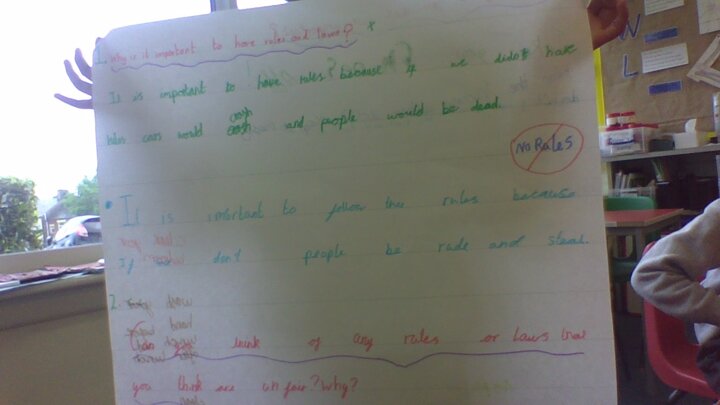 1. Why is it important to have rules and laws?
It is important to have rules? because if we didn't have
rules cars would crash and people would be dead.
No RuLeS
It is imortant to follow the rules because
if we don't people be rude and steal.
2.
think of any rules or laws that
you think are un fair? Why?
W
L